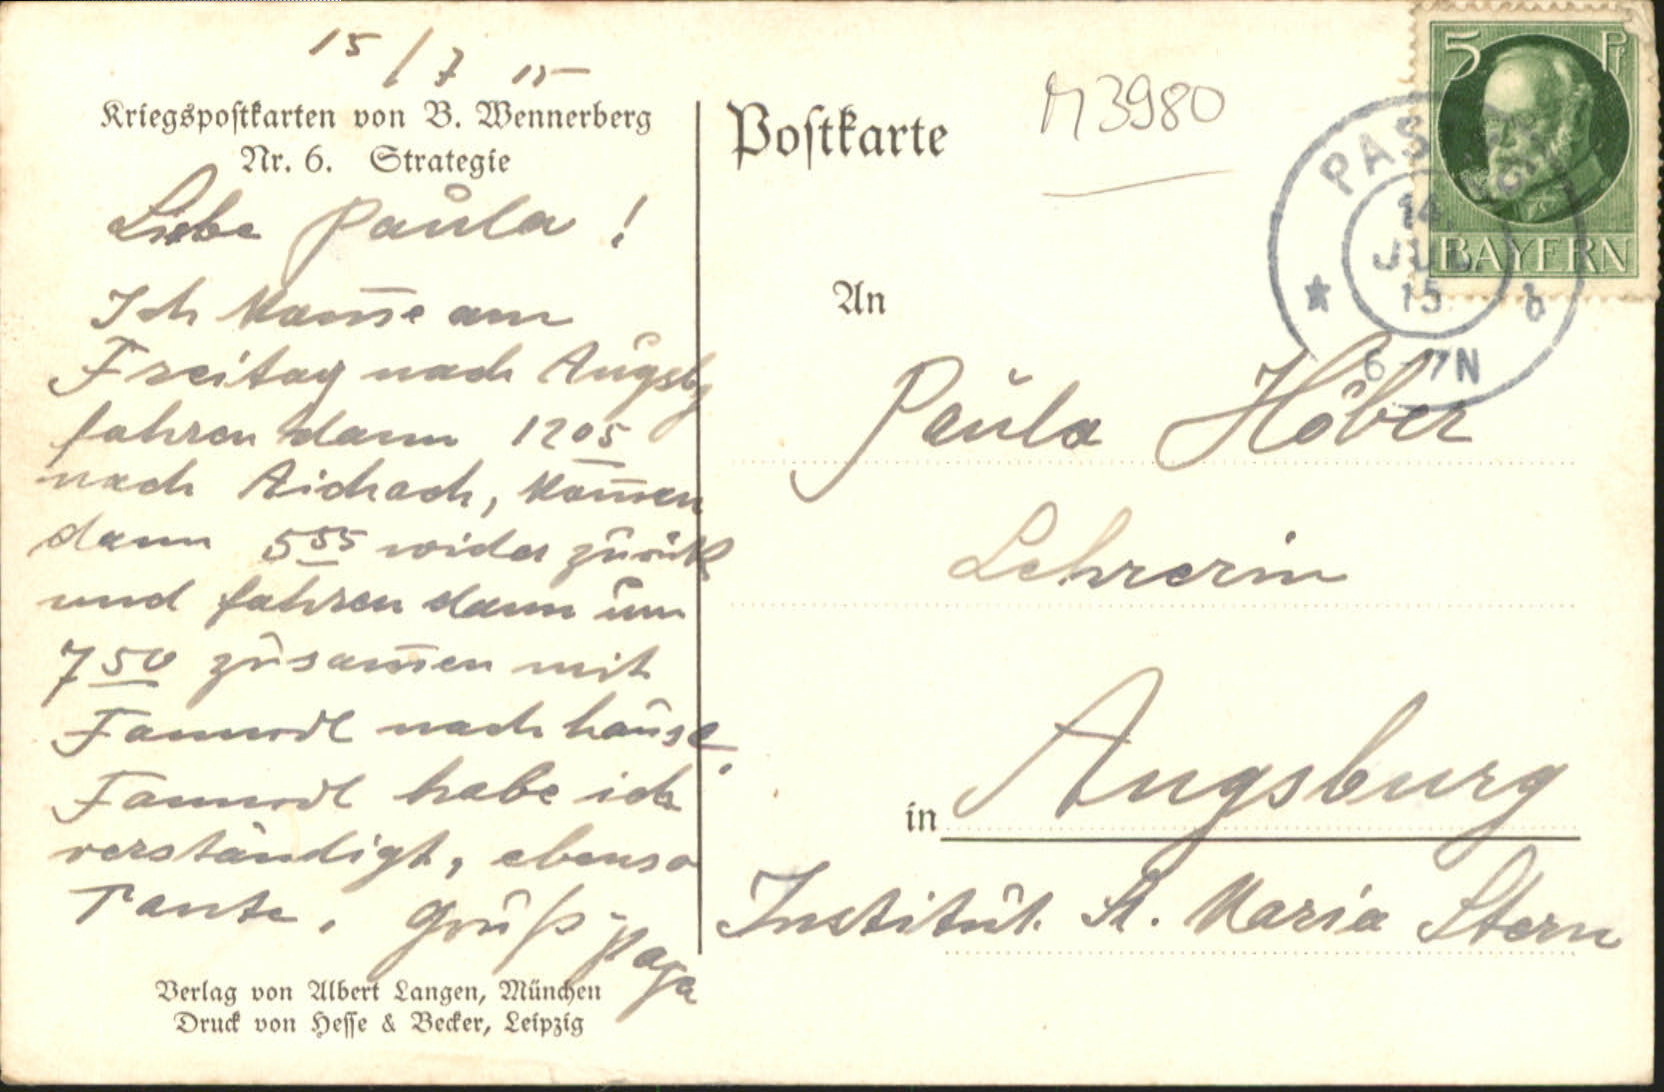 15/7 15
Kriegspostkarten von B. Wennerberg
Nr. 6. Strategie
Liebe Paula!
Ich kom̅e am
Freitag nach Augsbg
fahren dann 12 05
nach Aichach, kom̅en
dann 5 55 wider zurück
und fahren dann um
7 50 zusam̅en mit
nach hause.
habe ich
verständigt, ebenso
Tante. Gruß Papa
Verlag von Albert Langen, München
Druck von Hesse & Becker, Leipzig
Postkarte
M3980
5 Pf
BAYERN
PAS
14.
JUL.
15
b
6-7N
An
Paula Höber
Lehrerin
in Augsburg
Institut St. Maria Stern